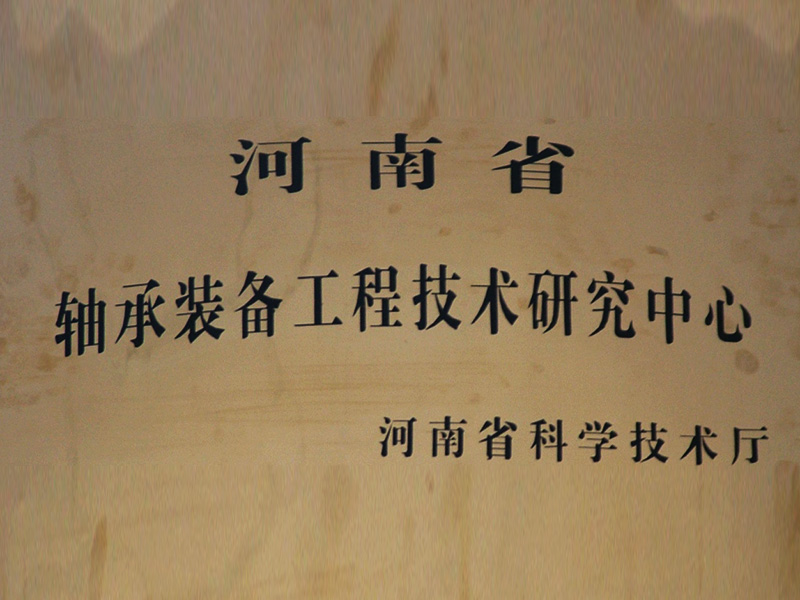 河南省
轴承装备工程技术研究中心
河南省科学技术厅